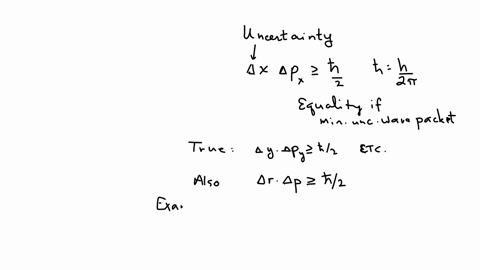 Uncertainty
Δx Δpₓ ≥ ħ/2 ħ = h/2π
Equality if
min. unc. wave packet
True: Δy·Δp_y ≥ ħ/2 ETC.
Also Δr·Δp ≥ ħ/2
Exa.